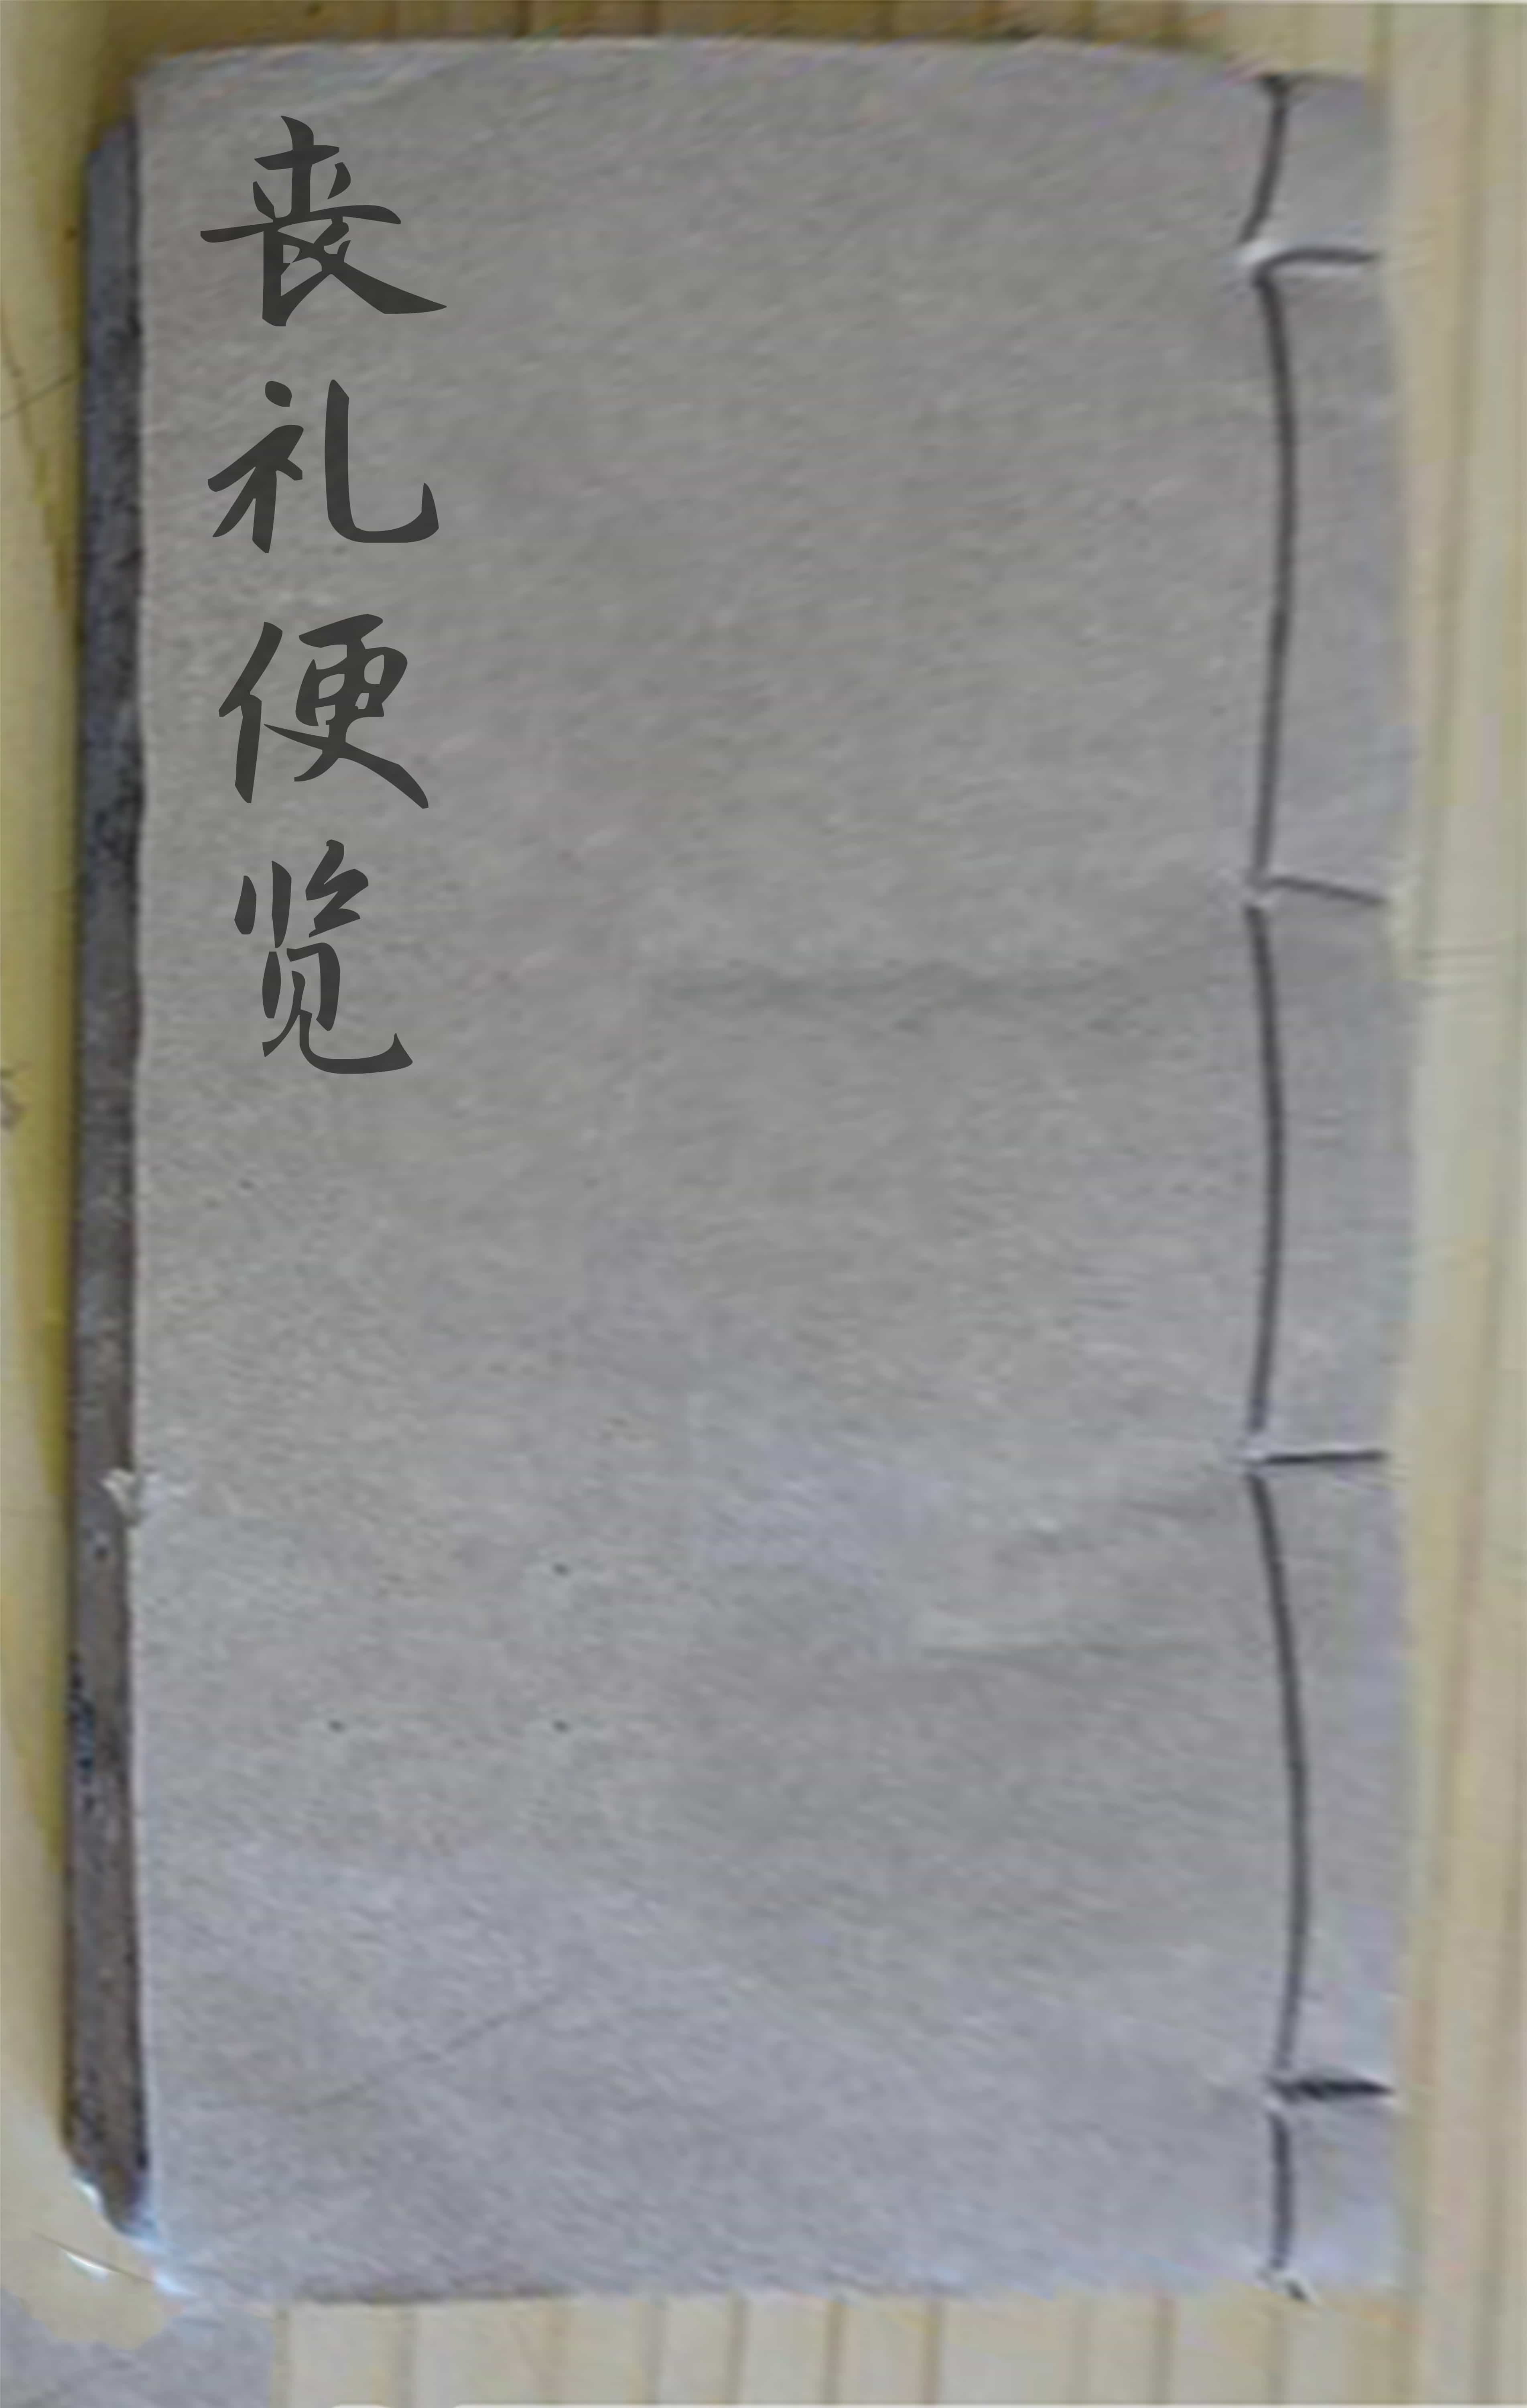 丧礼便览